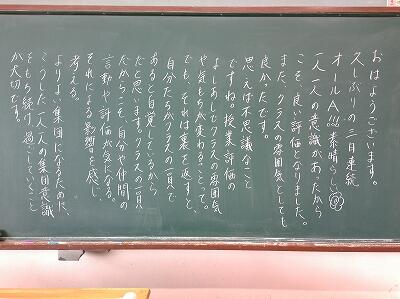 おはようございます。
久しぶりの三月連続
オールA!!!素晴らしい
一人一人の意識があったから
こそ、良い評価となりました。
また、クラスの雰囲気としても
良かったです。
思えば不思議なこと
ですね。授業評価の
よしあしでクラスの雰囲気
や気もちが変わることって。
でも、それは裏を返すと、
自分たちがクラスの一員で
あると自覚しているから
だと思います。クラスの一員
だからこそ、自分や仲間の
言動や評価が気になる。
それによる影響を感じ、
考える。
よりよい集団になるために、
こうした一人一人の集団意識
をもち続け、過ごしていくこと
が大切です。